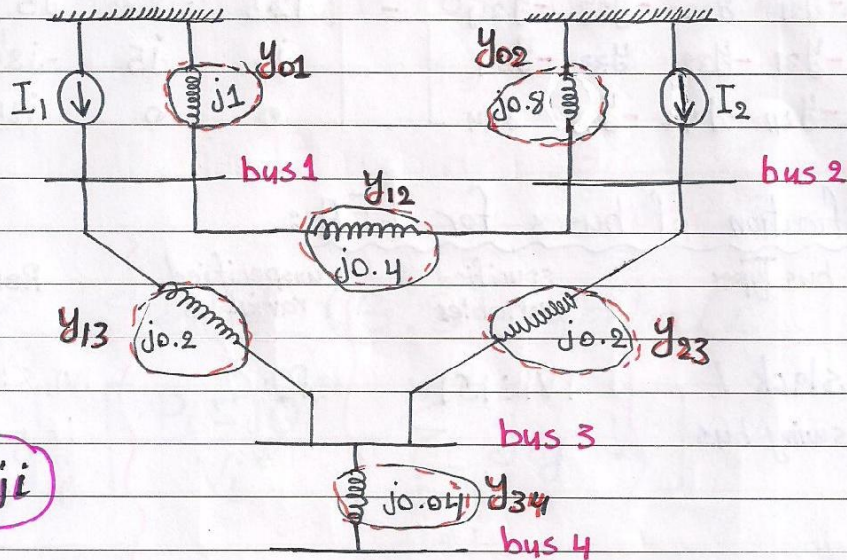 y01
y02
I1
j1
j0.8
I2
bus 1
bus 2
y12
j0.4
y13
j0.2
j0.2
y23
bus 3
ji
j0.04
y34
bus 4